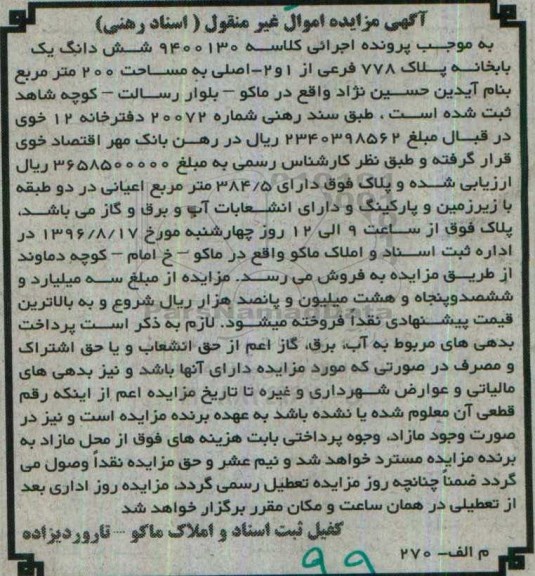 آگهی مزایده اموال غیر منقول ( اسناد رهنی)
به موجب پرونده اجرائی کلاسه ۹۴۰۰۱۳۰ شش دانگ یک
بابخانه پلاک ۷۷۸ فرعی از ۱و۲-اصلی به مساحت ۲۰۰ متر مربع
بنام آیدین حسین نژاد واقع در ماکو - بلوار رسالت - کوچه شاهد
ثبت شده است ، طبق سند رهنی شماره ۲۰۰۷۲ دفترخانه ۱۲ خوی
در قبال مبلغ ۲۳۴۰۳۹۸۵۶۲ ریال در رهن بانک مهر اقتصاد خوی
قرار گرفته و طبق نظر کارشناس رسمی به مبلغ ۳۶۵۸۵۰۰۰۰۰ ریال
ارزیابی شده و پلاک فوق دارای ۳۸۴/۵ متر مربع اعیانی در دو طبقه
با زیرزمین و پارکینگ و دارای انشعابات آب و برق و گاز می باشد،
پلاک فوق از ساعت ۹ الی ۱۲ روز چهارشنبه مورخ ۱۳۹۶/۸/۱۷ در
اداره ثبت اسناد و املاک ماکو واقع در ماکو - خ امام - کوچه دماوند
از طریق مزایده به فروش می رسد. مزایده از مبلغ سه میلیارد و
ششصدوپنجاه و هشت میلیون و پانصد هزار ریال شروع و به بالاترین
قیمت پیشنهادی نقداً فروخته میشود. لازم به ذکر است پرداخت
بدهی های مربوط به آب، برق، گاز اعم از حق انشعاب و یا حق اشتراک
و مصرف در صورتی که مورد مزایده دارای آنها باشد و نیز بدهی های
مالیاتی و عوارض شهرداری و غیره تا تاریخ مزایده اعم از اینکه رقم
قطعی آن معلوم شده یا نشده باشد به عهده برنده مزایده است و نیز در
صورت وجود مازاد، وجوه پرداختی بابت هزینه های فوق از محل مازاد به
برنده مزایده مسترد خواهد شد و نیم عشر و حق مزایده نقداً وصول می
گردد ضمناً چنانچه روز مزایده تعطیل رسمی گردد، مزایده روز اداری بعد
از تعطیلی در همان ساعت و مکان مقرر برگزار خواهد شد
کفیل ثبت اسناد و املاک ماکو --- تاروردیزاده
م الف- ۲۷۰
۹۹
ParsNamadData